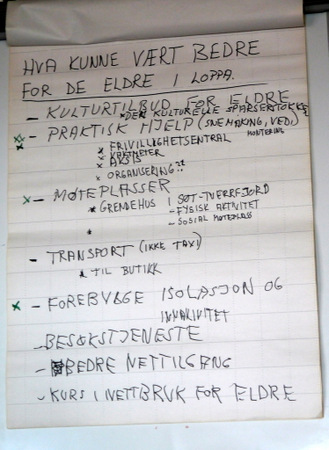 HVA KUNNE VÆRT BEDRE
FOR DE ELDRE I LOPPA.
- KULTURTILBUD FOR ELDRE
* DEN KULTURELLE SPASERSTOKKEN
- PRAKTISK HJELP (SNEMÅKING, VED)
HENTERING
* FRIVILLIGHETSENTRAL
* VAKTMETER
* AKSIS
* ORGANISERING??
- MØTEPLASSER
* GRENDEHUS I SØT-TVERRFJORD
- FYSISK AKTIVITET
- SOSIAL MØTEPLASS
*
- TRANSPORT (IKKE TAXI)
* TIL BUTIKK
- FOREBYGGE ISOLASJON OG
INAKTIVITET
- BESØKSTJENESTE
- BEDRE NETTILGANG
- KURS I NETTBRUK FOR ELDRE